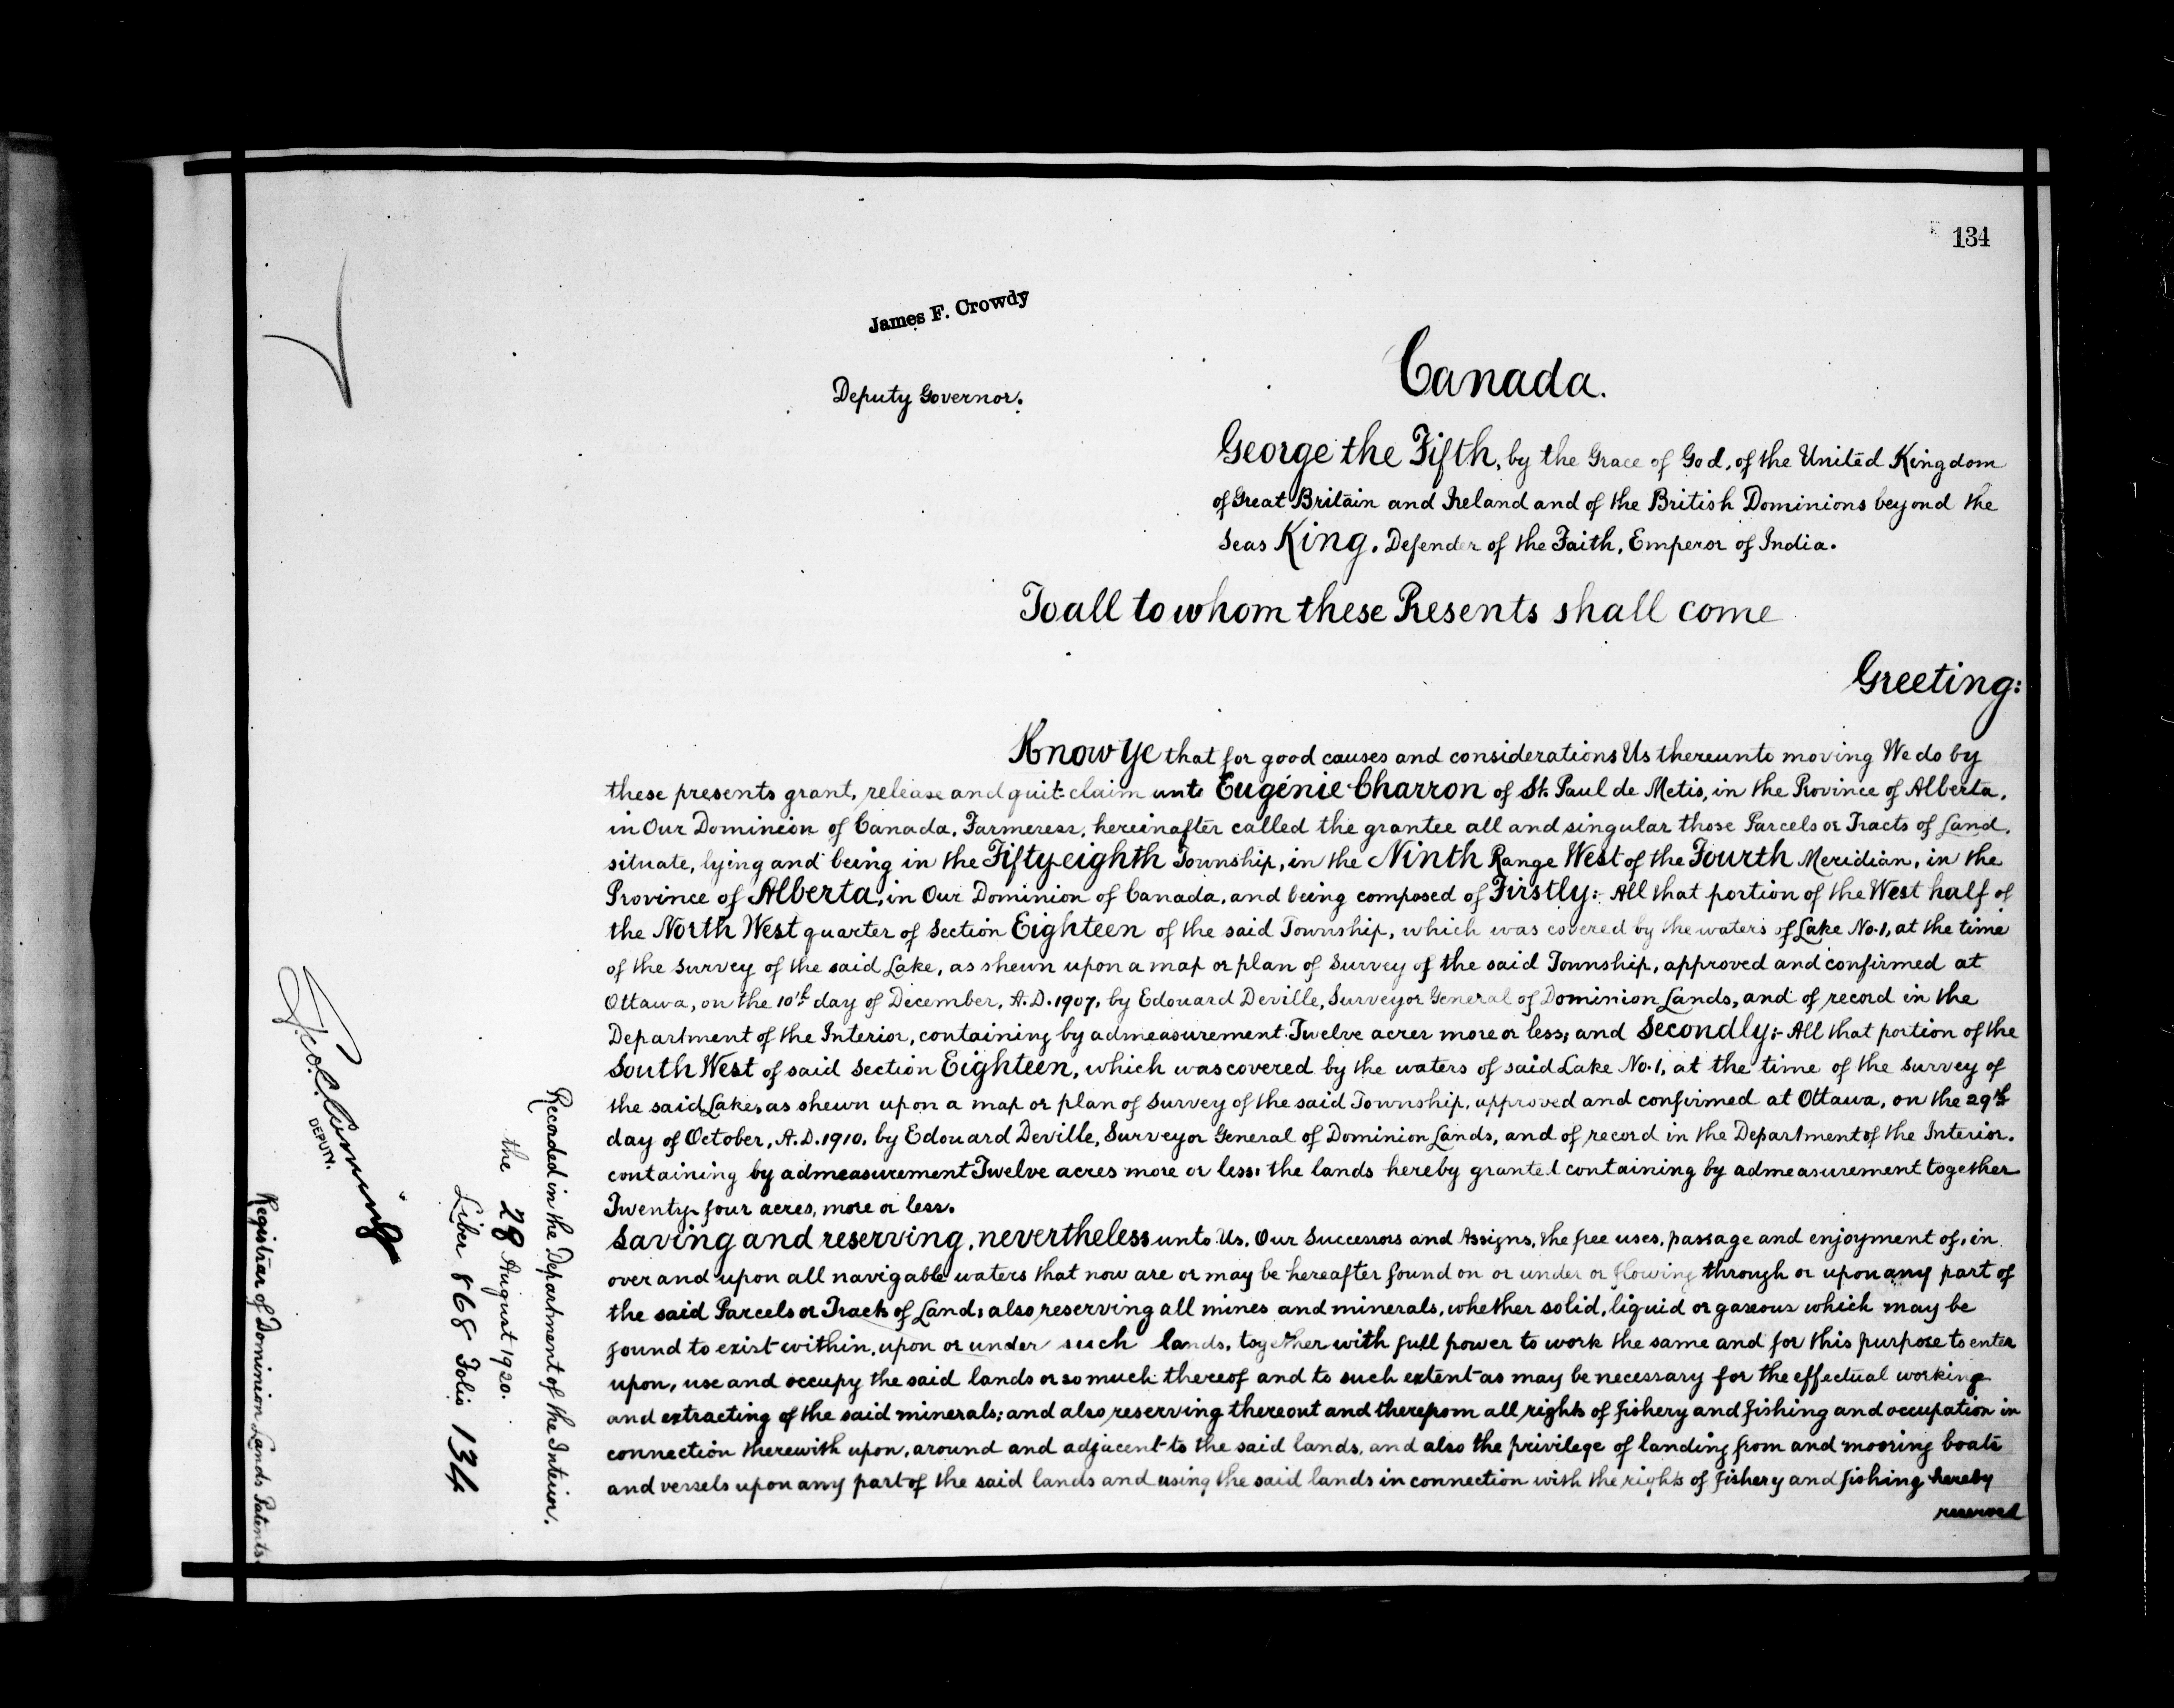 134
James F. Crowdy
Deputy Governor.
Canada.
George the Fifth, by the Grace of God, of the United Kingdom
of Great Britain and Ireland and of the British Dominions beyond the
Seas King, Defender of the Faith, Emperor of India.
To all to whom these Presents shall come
Greeting:
Know Ye that for good causes and considerations Us thereunto moving We do by
these presents grant, release and quit-claim unto Eugénie Charron of St. Paul de Metis, in the Province of Alberta,
in Our Dominion of Canada, Farmeress, hereinafter called the grantee all and singular those Parcels or Tracts of Land,
situate, lying and being in the Fifty eighth Township, in the Ninth Range West of the Fourth Meridian, in the
Province of Alberta, in Our Dominion of Canada, and being composed of Firstly:- All that portion of the West half of
the North West quarter of Section Eighteen of the said Township, which was covered by the waters of Lake No. 1, at the time
of the survey of the said Lake, as shewn upon a map or plan of Survey of the said Township, approved and confirmed at
Ottawa, on the 10th day of December, A.D. 1907, by Edouard Deville, Surveyor General of Dominion Lands, and of record in the
Department of the Interior, containing by admeasurement Twelve acres more or less; and Secondly:- All that portion of the
South West of said Section Eighteen, which was covered by the waters of said Lake No. 1, at the time of the survey of
the said Lake, as shewn upon a map or plan of Survey of the said Township, approved and confirmed at Ottawa, on the 29th
day of October, A.D. 1910, by Edouard Deville, Surveyor General of Dominion Lands, and of record in the Department of the Interior,
containing by admeasurement Twelve acres more or less, the lands hereby granted containing by admeasurement together
Twenty-four acres, more or less.
Saving and reserving, nevertheless unto Us, Our Successors and Assigns, the free uses, passage and enjoyment of, in
over and upon all navigable waters that now are or may be hereafter found on or under or flowing through or upon any part of
the said Parcels or Tracts of Land; also reserving all mines and minerals, whether solid, liquid or gaseous which may be
found to exist within, upon or under such lands, together with full power to work the same and for this purpose to enter
upon, use and occupy the said lands or so much thereof and to such extent as may be necessary for the effectual working
and extracting of the said minerals; and also reserving thereout and therefrom all rights of fishery and fishing and occupation in
connection therewith upon, around and adjacent to the said lands, and also the privilege of landing from and mooring boats
and vessels upon any part of the said lands and using the said lands in connection with the rights of fishery and fishing hereby
reserved
Recorded in the Department of the Interior.
the 28 August 1920.
Liber 868 Folio 134
DEPUTY.
Registrar of Dominion Lands Patents.